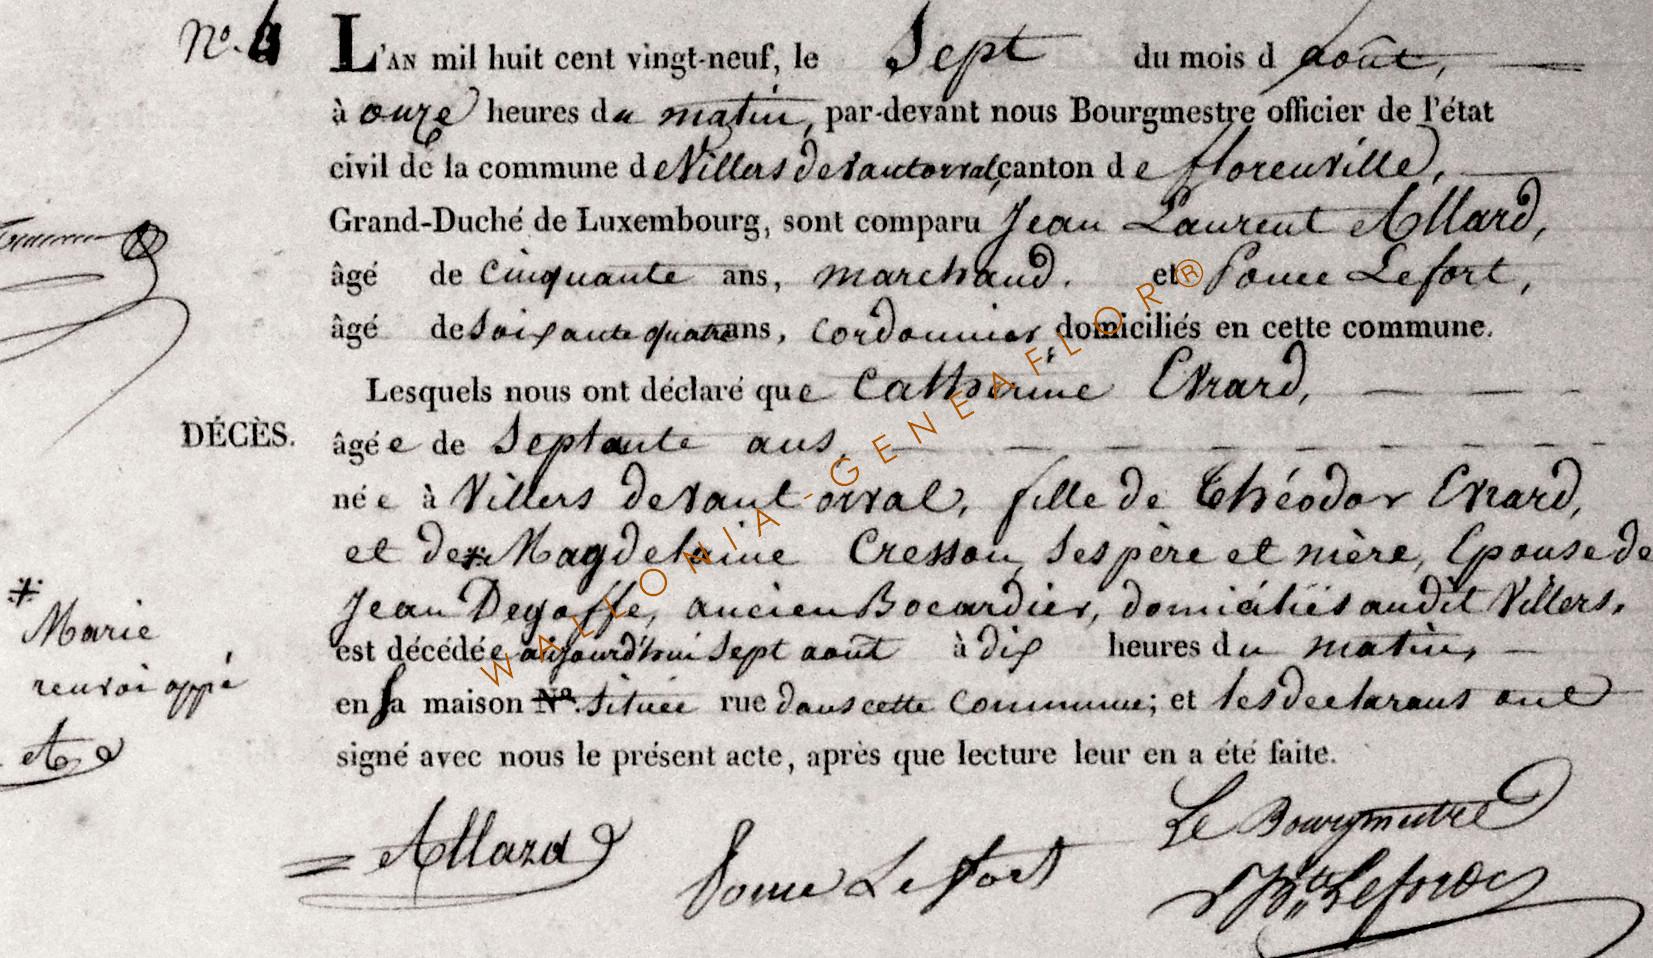 No. 4
L'AN mil huit cent vingt-neuf, le Sept du mois d août,
à onze heures du matin, par-devant nous Bourgmestre officier de l'état
civil de la commune de Villers devant orval, canton de florenville,
Grand-Duché de Luxembourg, sont comparu Jean Laurent Allard,
âgé de Cinquante ans, marchand. et Ponce Lefort,
âgé de Soixante quatre ans, Cordonnier domiciliés en cette commune.
Lesquels nous ont déclaré que Catherine Evrard,
DÉCÈS.
âgée de Septante ans,
née à Villers devant orval, fille de Théodor Evrard,
et de * Magdelaine Cresson, Ses père et mère, Epouse de
Jean Degoffe, ancien Bocardier, domiciliés audit Villers,
est décédée aujourd'hui Sept août à dix heures du matin,
en sa maison No. Située rue dans cette Commune; et les declarans ont
signé avec nous le présent acte, après que lecture leur en a été faite.
* Marie
renvoi appé
Allard
Ponce Lefort
Le Bourgmestre
WALLONIA-GENEAFLOR®